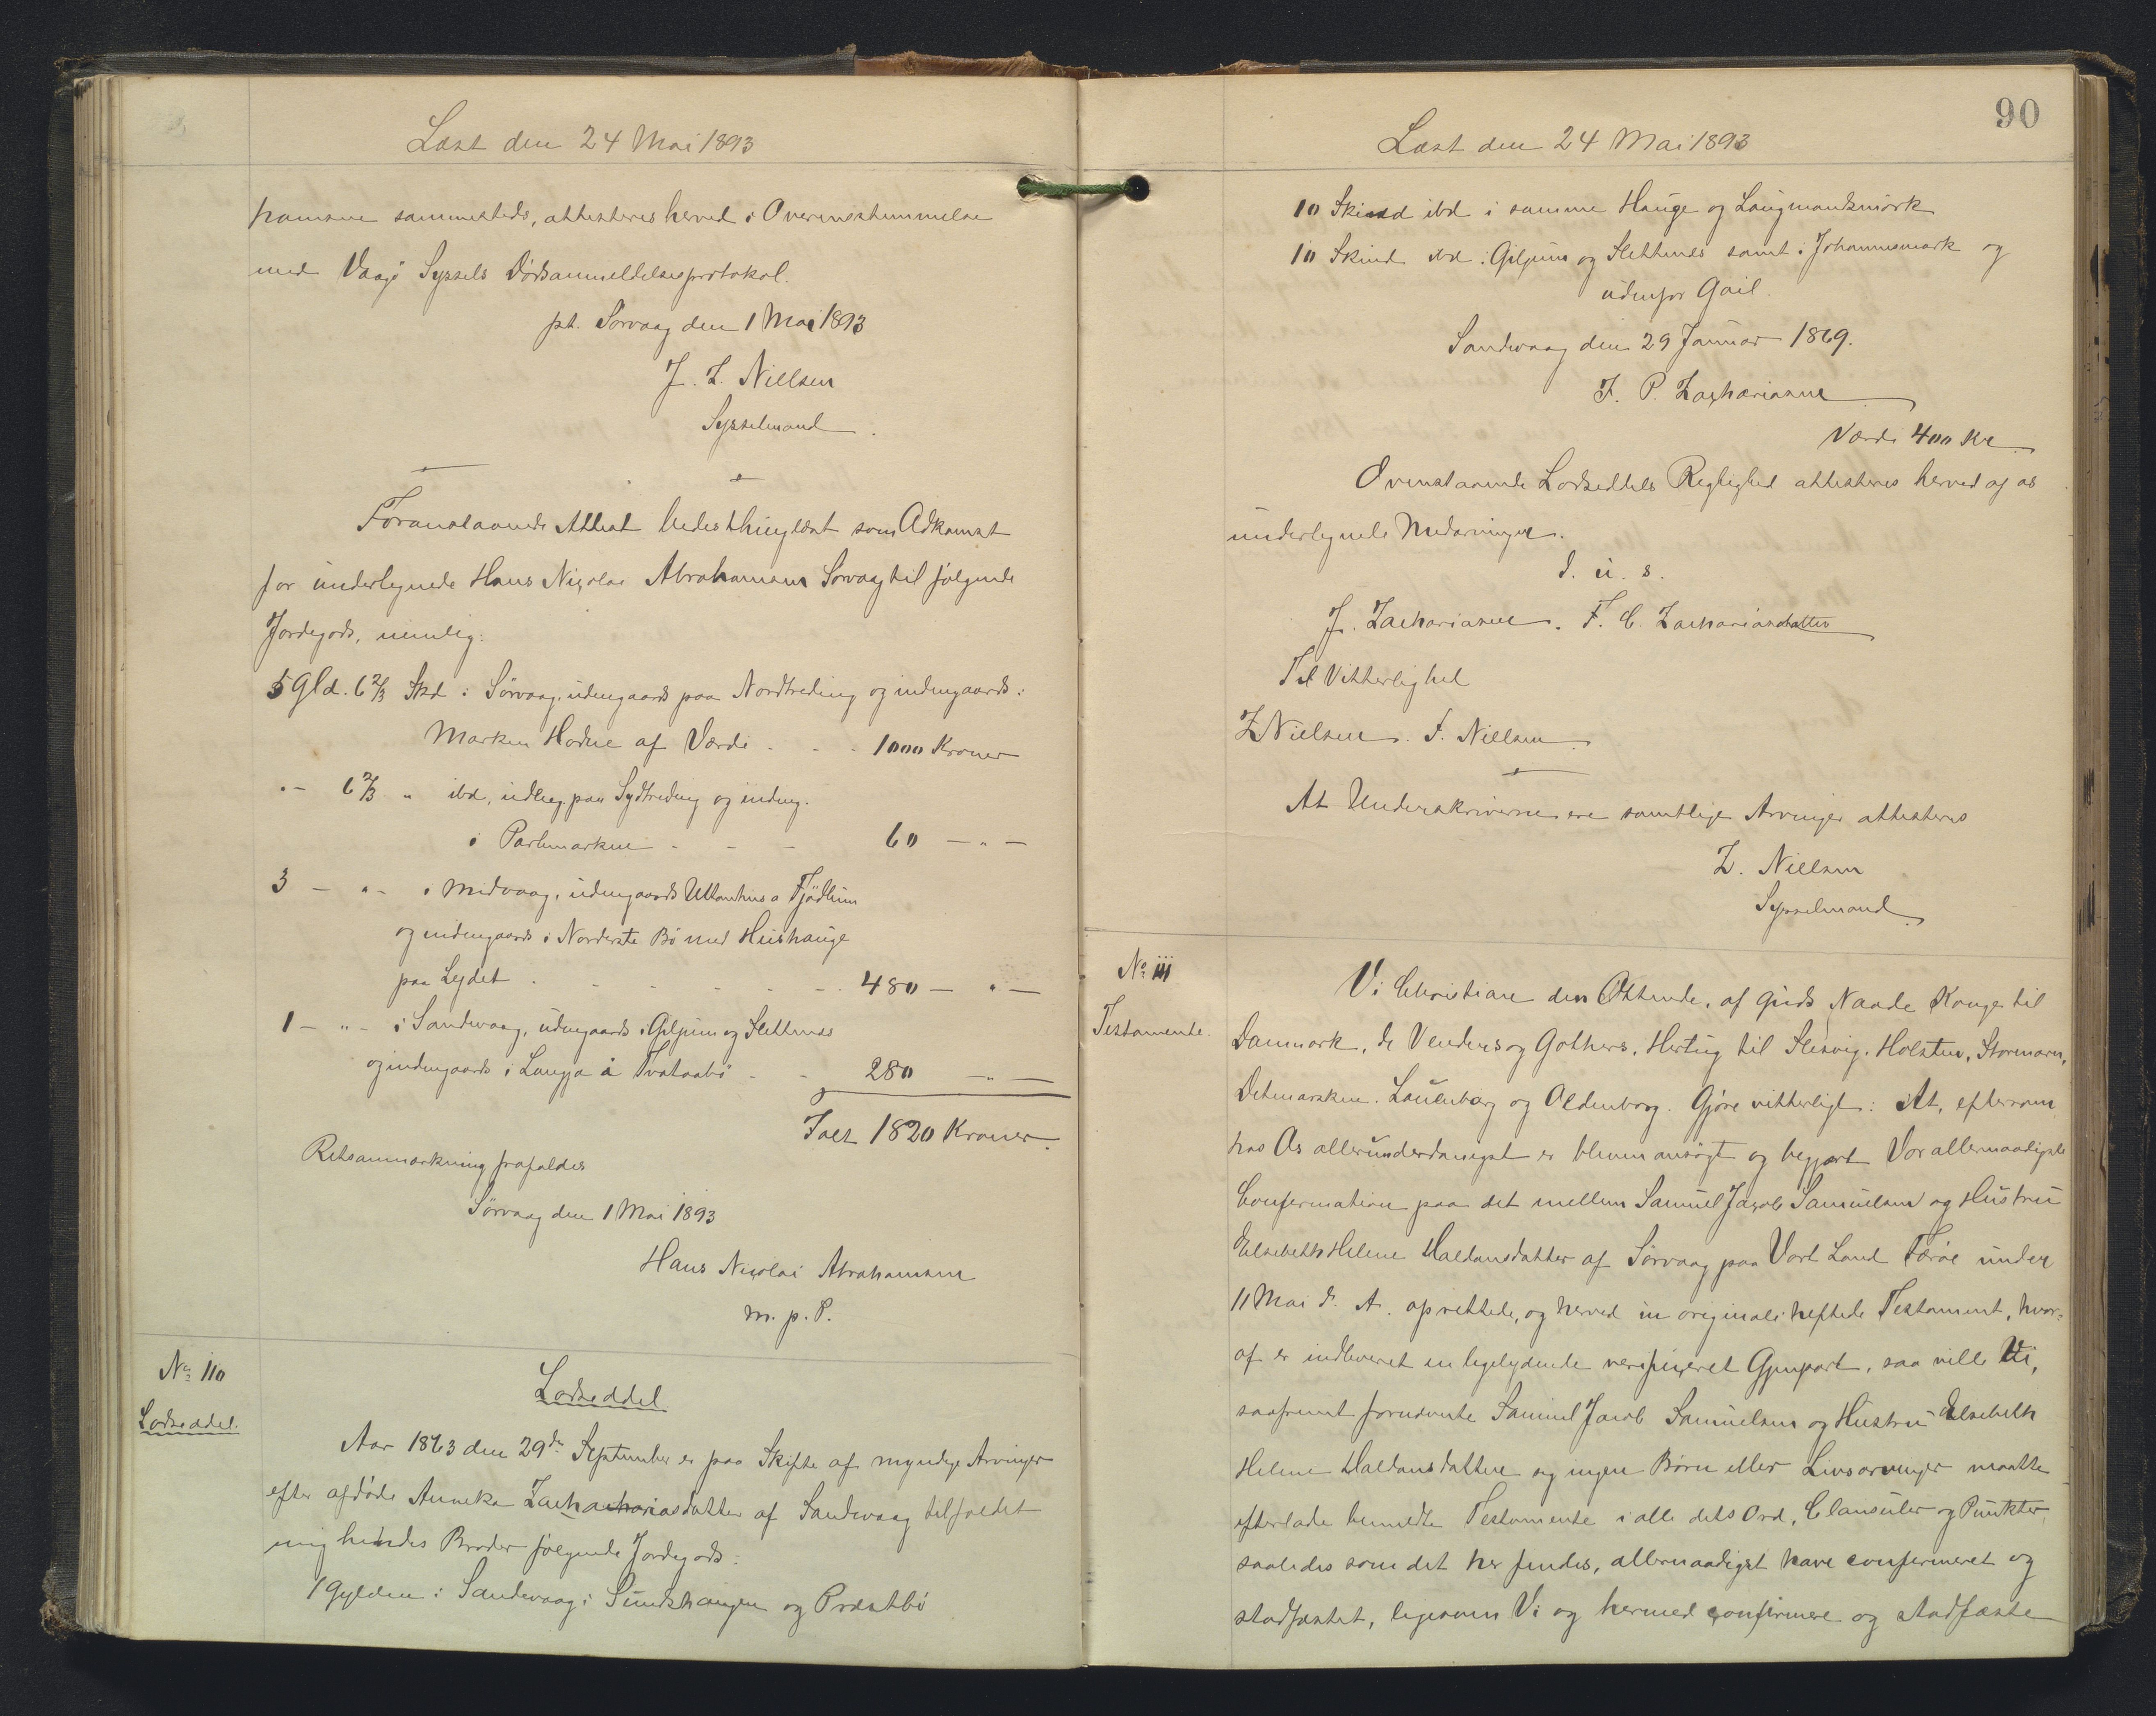 Læst den 24 Mai 1893
hamsen sammesteds, attesteres herved i Overensstemmelse
med Vaagø Syssels Dødsanmeldelsesprotokol.
pt. Sørvaag den 1 Mai 1893
J. Z. Nielsen
Sysselmand.
Foranstaaende Attest bedes thinglæst som Adkomst
for undertegnede Hans Nicolai Abrahamsen Sørvaag til følgende
Jordegods, nemlig:
5 Gld. 6 2/3 Skd i Sørvaag, udengaards paa Nordtreding og indengaards i
Marken Hodne af Værdi - - 1000 Kroner
" - 6 2/3 " ibd, udleg. paa Sydtreding og indeng.
i Parlmarken - - - 60 - " -
3 - " - i Midvaag, udengaards Uttanhus a Fjødlum
og indengaards i Norderste Bø med Hushauge
paa Lejdet - - - - - - 480 - " -
1 - " - i Sandevaag, udengaards i Giljum og Slettenes
og indengaards i Langja á Tvataabø - - 280 - " -
Ialt 1820 Kroner
Retsanmærkning frafaldes
Sørvaag den 1 Mai 1893
Hans Nicolai Abrahamsen
m. p. P.
No 110
Lodseddel.
Lodseddel
Aar 1863 den 29de September er paa Skifte af myndige Arvinger
efter afdøde Annika Zachachariasdatter af Sandevaag tilfaldet
mig hendes Broder følgende Jordegods:
1 Gylden i Sandevaag i Sundshaugen og Præstbø
90
Læst den 24 Mai 1893
10 Skind ibd i samme Hauge og Laugmandsmørk
10 Skind ibd i Giljum og Slettenes samt i Johannesmørk og
udenfor Gail.
Sandevaag den 29 Januar 1869.
J. P. Zachariasen
Værdi 400 Kr
Ovenstaaende Lodseddels Rigtighed attesteres herved af os
undertegnede Medarvinger.
D. u. s.
J. Zachariasen. F. C. Zachariasdatter
Til Vitterlighed
Z Nielsen. J. Nielsen
At Underskriverne ere samtlige Arvinger attesteres
Z. Nielsen
Sysselmand
No 111
Testamente.
Vi Christian den Ottende, af Guds Naade Konge til
Danmark, de Venders og Gothers, Hertug til Slesvig, Holsten, Stormarn,
Ditmarsken, Lauenborg og Oldenborg. Gjøre vitterligt: At, eftersom
hos Os allerunderdanigst er bleven ansøgt og begjært Vor allernaadigste
Confirmation paa det mellem Samuel Jacob Samuelsen og Hustru
Elsebeth Helene Haldansdatter af Sørvaag paa Vort Land Færøe under
11 Mai d. A. oprettede, og herved in originali heftede Testament, hvor-
af er indleveret en ligelydende verificeret Gjenpart, saa ville Vi,
saafremt fornævnte Samuel Jacob Samuelsen og Hustru Elsebeth
Helene Haldansdatter sig ingen Børn eller Livsarvinger maatte
efterlade bemeldte Testamente i alle dets Ord, Clausuler og Punkter
saaledes som det her findes, allernaadigst have confirmeret og
stadfæstet, ligesom Vi og hermed confirmere og stadfæste